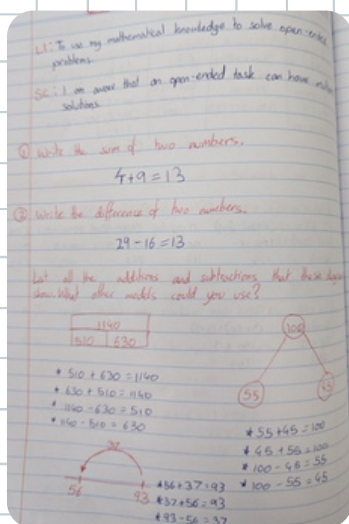 LI: To use my mathematical knowledge to solve open-ended
problems.
SC: I am aware that an open-ended task can have
solutions.
① Write the sum of two numbers.
4+9=13
② Write the difference of two numbers.
29-16=13
List all the additions and subtractions that these
show. What other models could you use?
1140
510 630
100
55
* 510 + 630 = 1140
* 630 + 510 = 1140
* 1140 - 630 = 510
* 1140 - 510 = 630
* 55 + 45 = 100
* 45 + 55 = 100
* 100 - 45 = 55
* 100 - 55 = 45
37
56 93
* 56 + 37 = 93
* 37 + 56 = 93
* 93 - 56 = 37